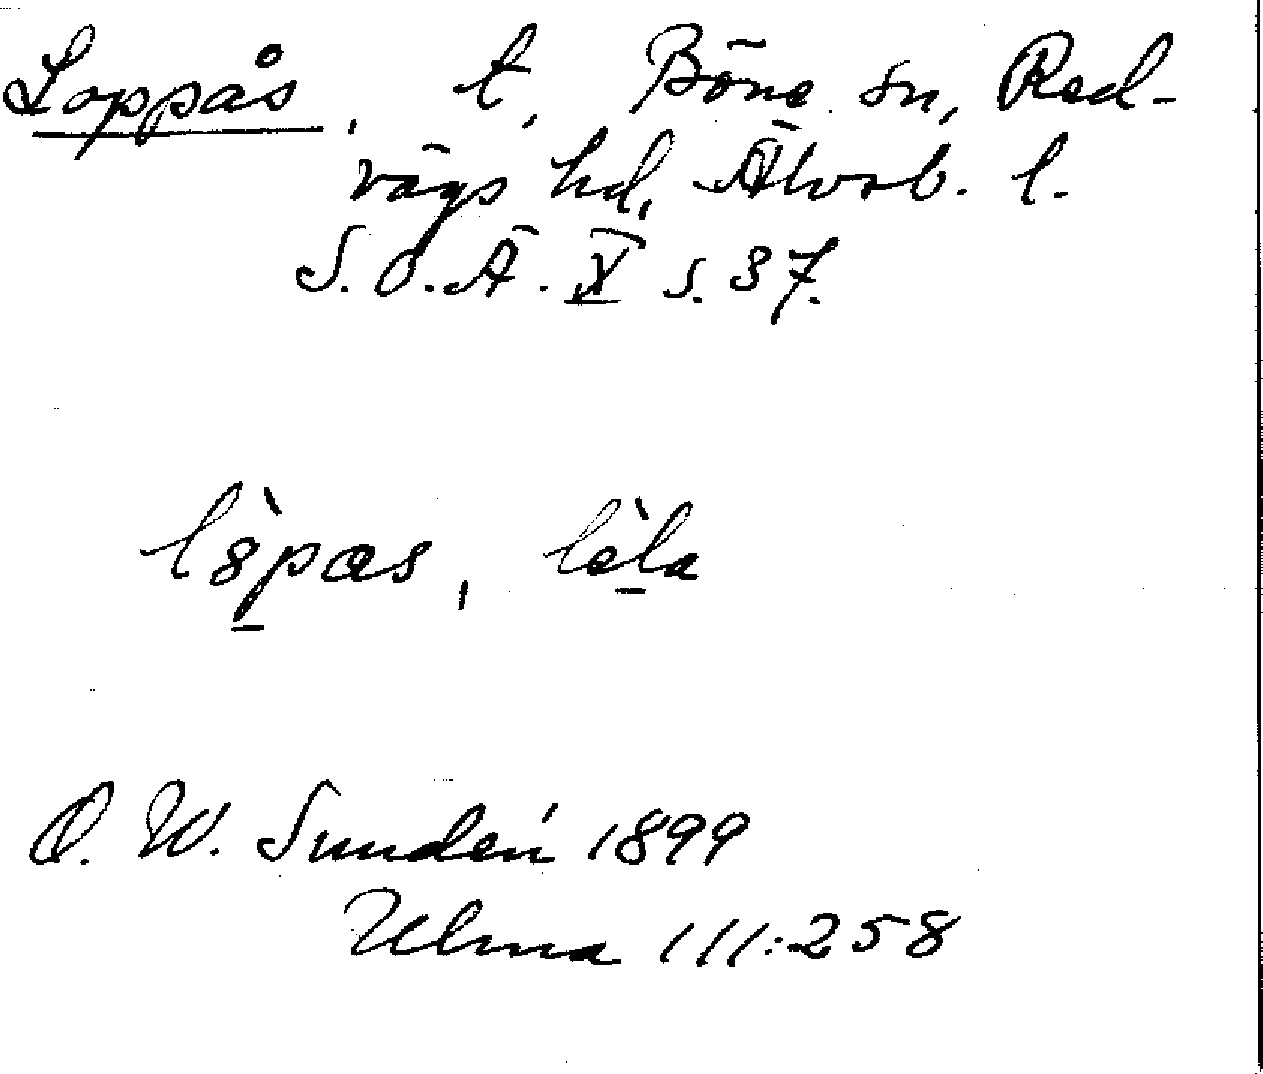 Loppås, t, Böne sn, Red-
vägs hd, Älvsb. l.
S. O. Ä. X s. 37.
l8̀pas, lèla
O. W. Sundén 1899
Ulma 111:258